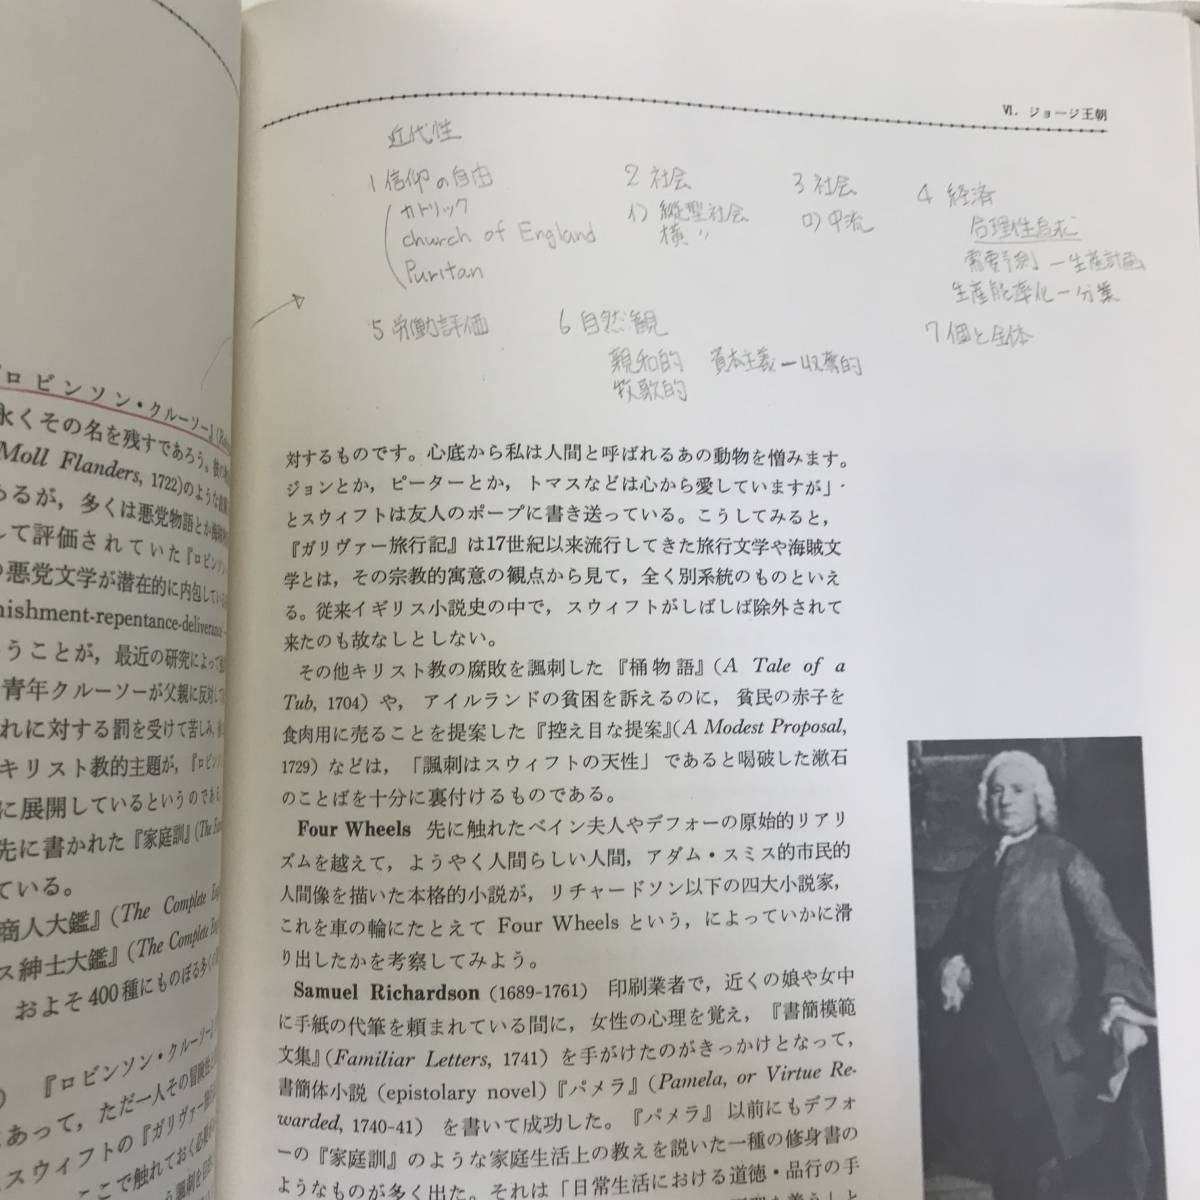 『ロビンソン・クルーソー』
永くその名を残すであろう。
Moll Flanders, 1722)のような
あるが，多くは悪党物語とか
して評価されていた『ロビンソン
の悪党文学が潜在的に内包している
nishment-repentance-deliverance
いうことが，最近の研究によって
青年クルーソーが父親に反対して
れに対する罰を受けて苦しみ，
キリスト教的主題が，『ロビンソ
に展開しているというのである。
先に書かれた『家庭訓』(The
ている。
商人大鑑』(The Complete
ス紳士大鑑』(The Complete
およそ400種にものぼる多くの
『ロビンソン・クルーソー』
あって，ただ一人その冒険
スウィフトの『ガリヴァー旅
ここで触れておく必
VI. ジョージ王朝
近代性
1 信仰の自由
カトリック
church of England
Puritan
2 社会
イ) 縦型社会
横 〃
3 社会
ロ) 中流
4 経済
合理性追求
需要予測 ー 生産計画
生産能率化 ー 分業
5 労働評価
6 自然観
親和的 資本主義 ー 収奪的
牧歌的
7 個と全体
対するものです。心底から私は人間と呼ばれるあの動物を憎みます。
ジョンとか，ピーターとか，トマスなどは心から愛していますが」
とスウィフトは友人のポープに書き送っている。こうしてみると，
『ガリヴァー旅行記』は17世紀以来流行してきた旅行文学や海賊文
学とは，その宗教的寓意の観点から見て，全く別系統のものといえ
る。従来イギリス小説史の中で，スウィフトがしばしば除外されて
来たのも故なしとしない。
その他キリスト教の腐敗を諷刺した『桶物語』(A Tale of a
Tub, 1704) や，アイルランドの貧困を訴えるのに，貧民の赤子を
食肉用に売ることを提案した『控え目な提案』(A Modest Proposal,
1729) などは，「諷刺はスウィフトの天性」であると喝破した漱石
のことばを十分に裏付けるものである。
Four Wheels 先に触れたベイン夫人やデフォーの原始的リアリ
ズムを越えて，ようやく人間らしい人間，アダム・スミス的市民的
人間像を描いた本格的小説が，リチャードソン以下の四大小説家，
これを車の輪にたとえて Four Wheels という，によっていかに滑
り出したかを考察してみよう。
Samuel Richardson (1689-1761) 印刷業者で，近くの娘や女中
に手紙の代筆を頼まれている間に，女性の心理を覚え，『書簡模範
文集』(Familiar Letters, 1741) を手がけたのがきっかけとなって，
書簡体小説 (epistolary novel)『パメラ』(Pamela, or Virtue Re-
warded, 1740-41) を書いて成功した。『パメラ』以前にもデフォ
ーの『家庭訓』のような家庭生活上の教えを説いた一種の修身書の
ようなものが多く出た。それは「日常生活における道徳・品行の手